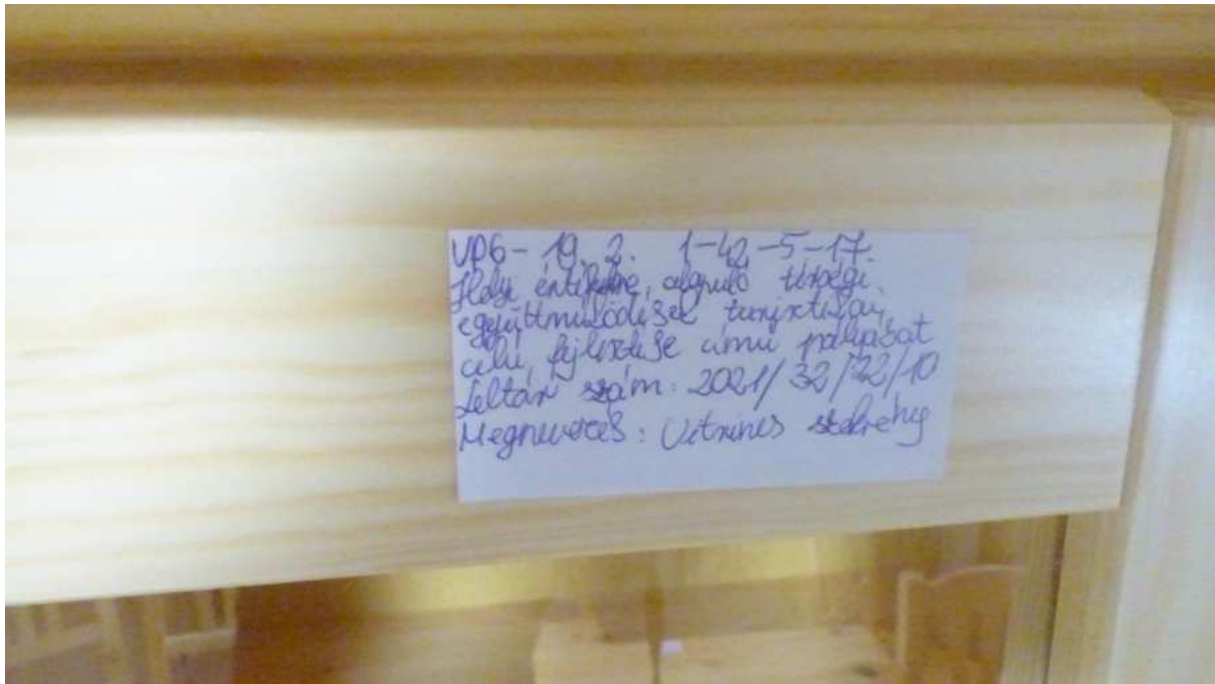 VP6-19. 2. 1-42-5-17.
Helyi értékekre, alapuló térségi
együttműködések turisztikai
célú fejlesztése című pályázat
Leltári szám: 2021/32/22/10
Megnevezés: Vitrines szekrény